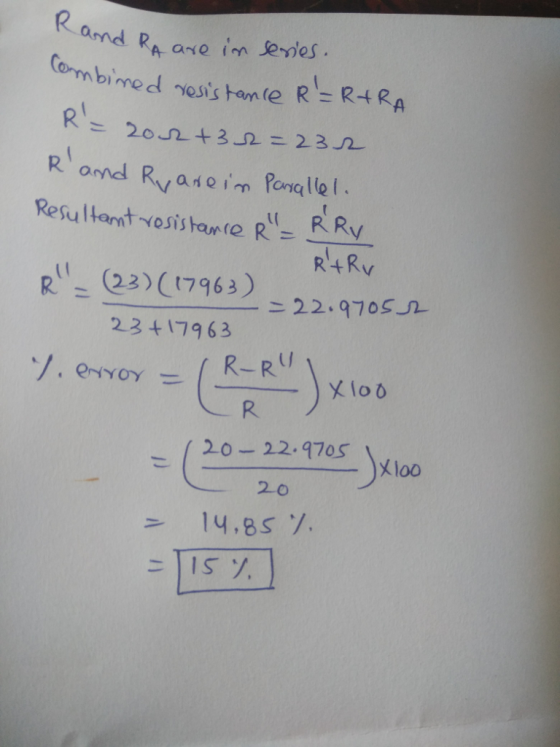 R and R_A are in series.
Combined resistance R' = R + R_A
R' = 20Ω + 3Ω = 23Ω
R' and R_V are in Parallel.
Resultant resistance R'' = R' R_V / R' + R_V
R'' = (23)(17963) / 23 + 17963 = 22.9705Ω
%. error = ( R - R'' / R ) × 100
= ( 20 - 22.9705 / 20 ) × 100
= 14.85 %.
= 15 %.